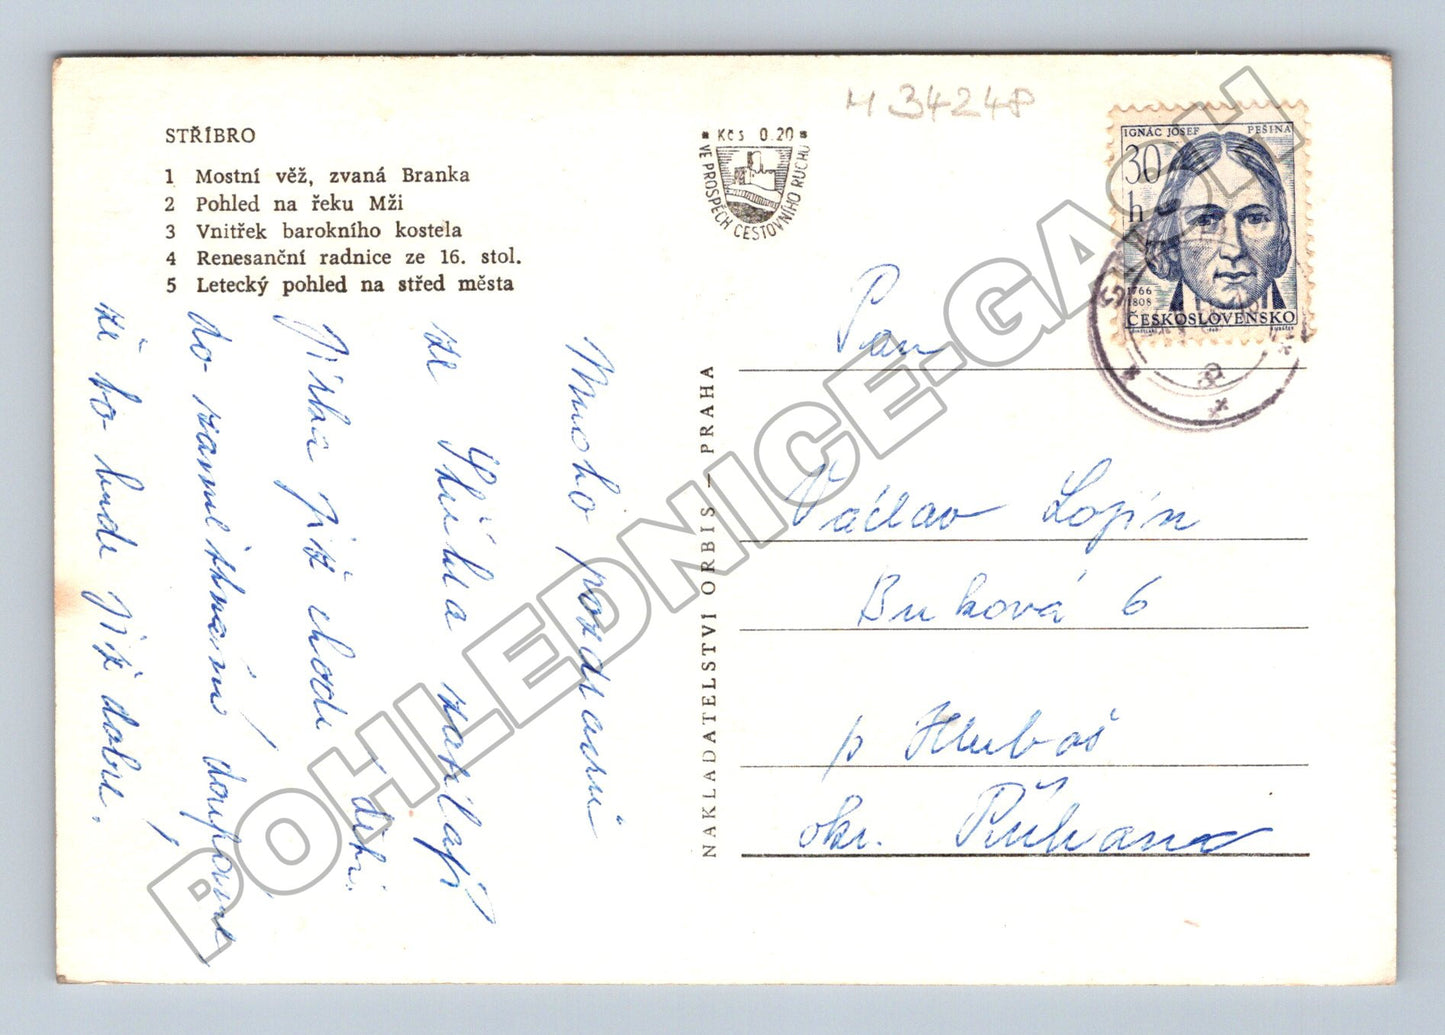 STŘÍBRO
1 Mostní věž, zvaná Branka
2 Pohled na řeku Mži
3 Vnitřek barokního kostela
4 Renesanční radnice ze 16. stol.
5 Letecký pohled na střed města
Mnoho pozdravů
ze Stříbra zasílají
Jiřka již chodí dětí.
do zaměstnání doufáme
že to bude již dobré.
NAKLADATELSTVÍ ORBIS – PRAHA
Kčs 0.20
VE PROSPĚCH CESTOVNÍHO RUCHU
M 34248
IGNÁC JOSEF PEŠINA
30
h
1766
1808
ČESKOSLOVENSKO
Pan
Václav Lojín
Buková 6
p Hluboš
okr. Příbram
POHLEDNICE-GASCH